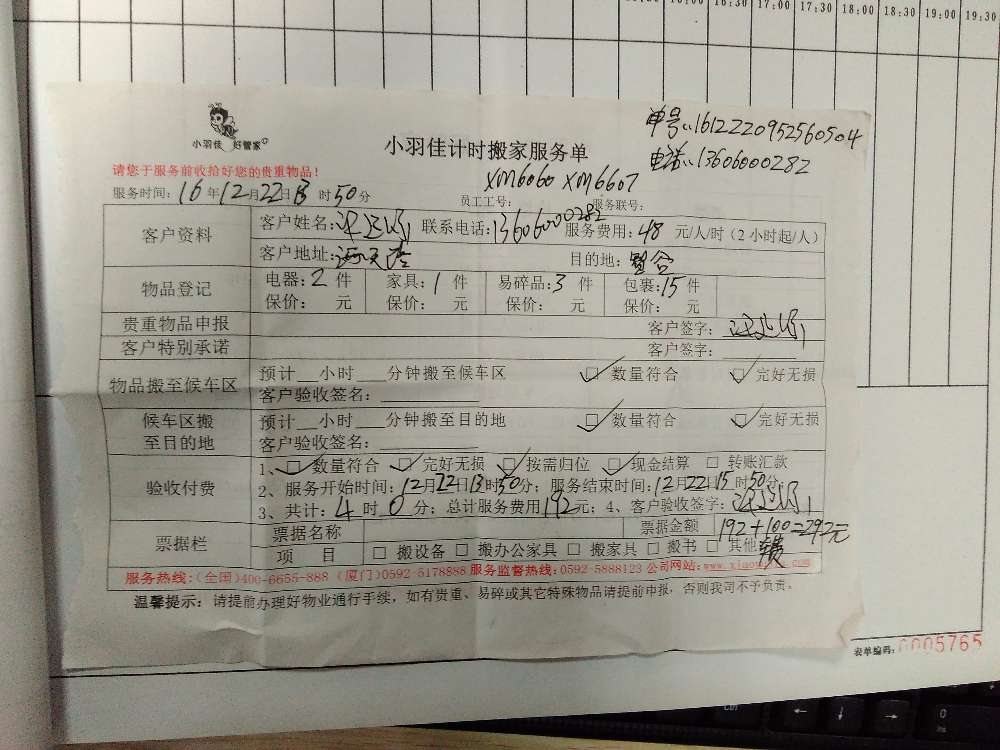 16:30 17:00 17:30 18:00 18:30 19:00 19:30
小羽佳 好管家
小羽佳计时搬家服务单
单号:1612220952560504
电话:13606000282
请您于服务前收拾好您的贵重物品!
XM6060 XM6607
服务时间:16年12月22日13时50分 员工工号: 服务联号:
客户资料
客户姓名: 联系电话:13606000282 服务费用:48元/人/时(2小时起/人)
客户地址: 目的地:
物品登记
电器:2件 家具:1件 易碎品:3件 包裹:15件
保价: 元 保价: 元 保价: 元 保价: 元
贵重物品申报 客户签字:
客户特别承诺 客户签字:
物品搬至候车区
预计__小时___分钟搬至候车区 ☑数量符合 ☑完好无损
客户验收签名:
候车区搬至目的地
预计__小时___分钟搬至目的地 ☑数量符合 ☑完好无损
客户验收签名:
验收付费
1、☑数量符合 ☑完好无损 ☑按需归位 ☑现金结算 □转账汇款
2、服务开始时间:12月22日13时50分;服务结束时间:12月22日15时50分;
3、共计:4时0分;总计服务费用192元;4、客户验收签字:
票据栏
票据名称 票据金额 192+100=292元
项 目 □搬设备 □搬办公家具 □搬家具 □搬书 □其他
服务热线:(全国)400-6655-888 (厦门)0592-5178888 服务监督热线:0592-5888123 公司网站:
温馨提示:请提前办理好物业通行手续,如有贵重、易碎或其它特殊物品请提前申报,否则我司不予负责。
表单编码:0005765
Ctrl ← ↓ → 0 Ins